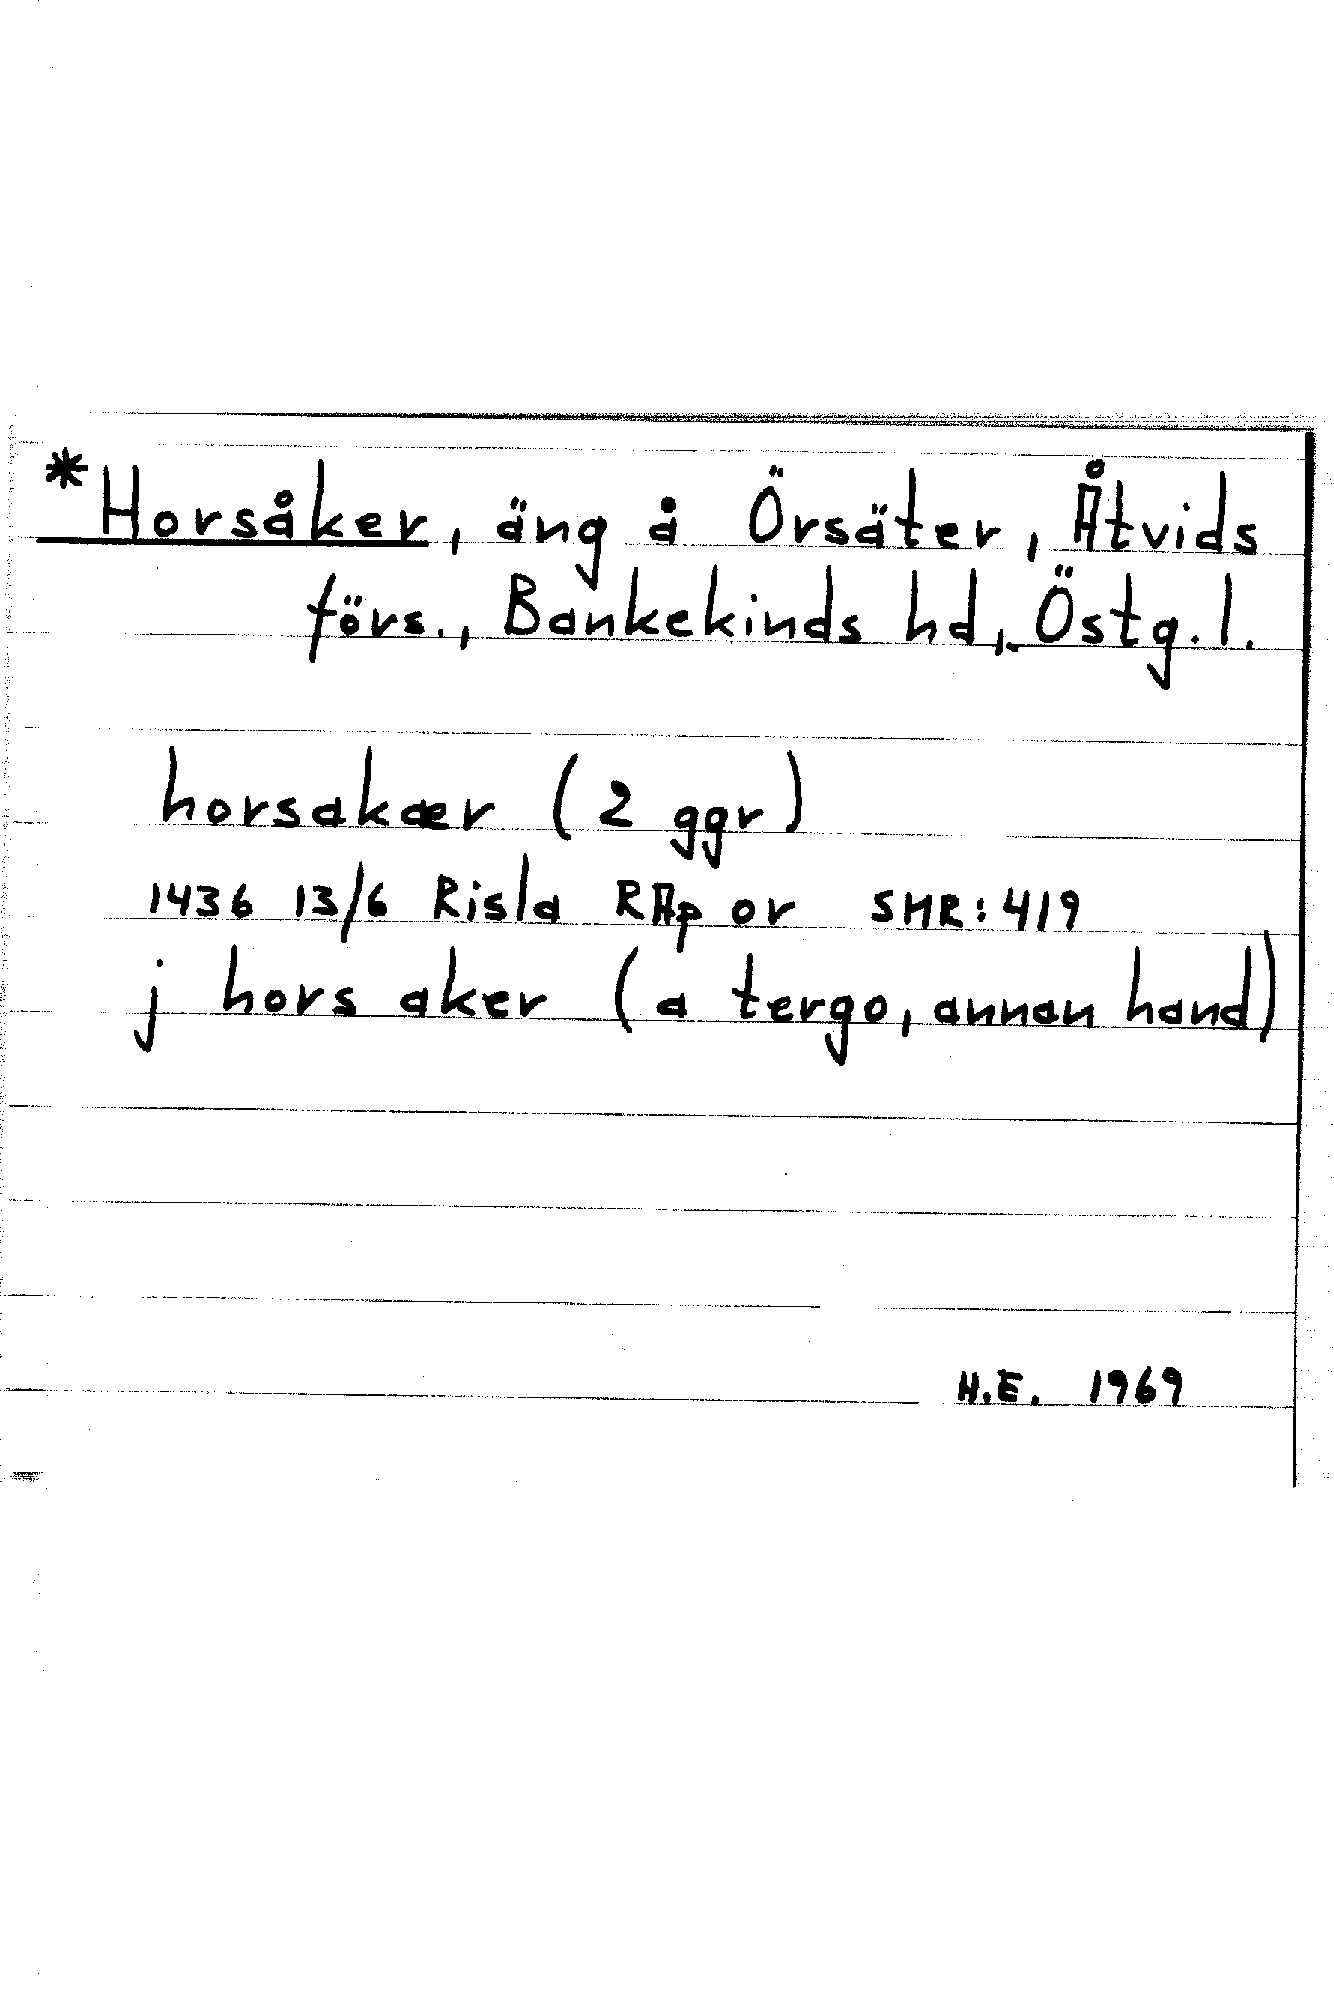 *Horsåker, äng å Örsäter, Åtvids
förs., Bankekinds hd, Östg.l.
horsakær (2 ggr)
1436 13/6 Risla RAp or SMR:419
j hors aker (a tergo, annan hand)
H.E. 1969